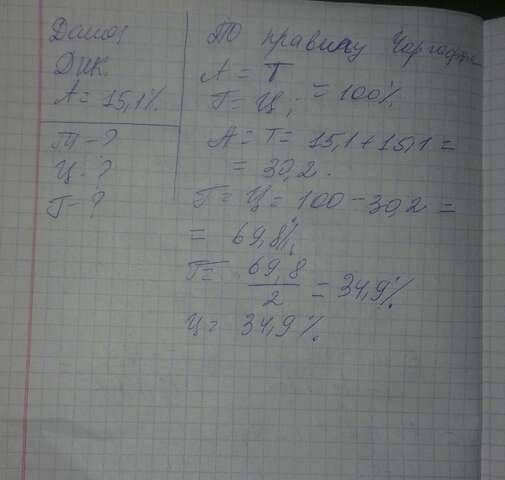 Дано:
ДНК
А = 15,1%
Т - ?
Ц - ?
Г - ?
По правилу Чаргаффа
А = Т
Г = Ц; = 100%
А = Т = 15,1 + 15,1 =
= 30,2.
Г = Ц = 100 - 30,2 =
= 69,8%
Г = 69,8/2 = 34,9%
Ц = 34,9%